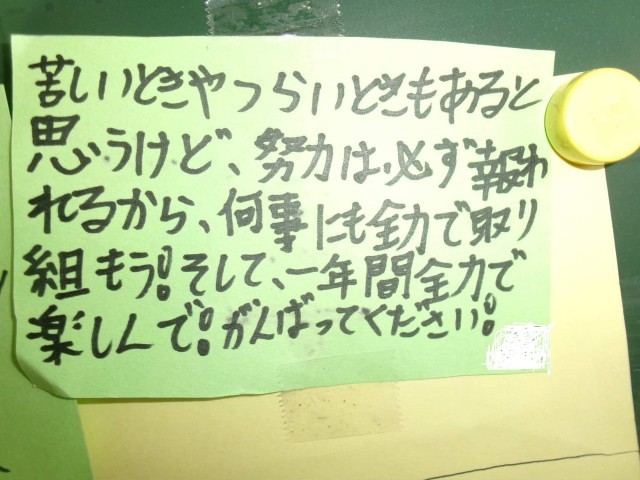 苦しいときやつらいときもあると
思うけど、努力は必ず報わ
れるから、何事にも全力で取り
組もう!そして、一年間全力で
楽しんで!がんばってください!